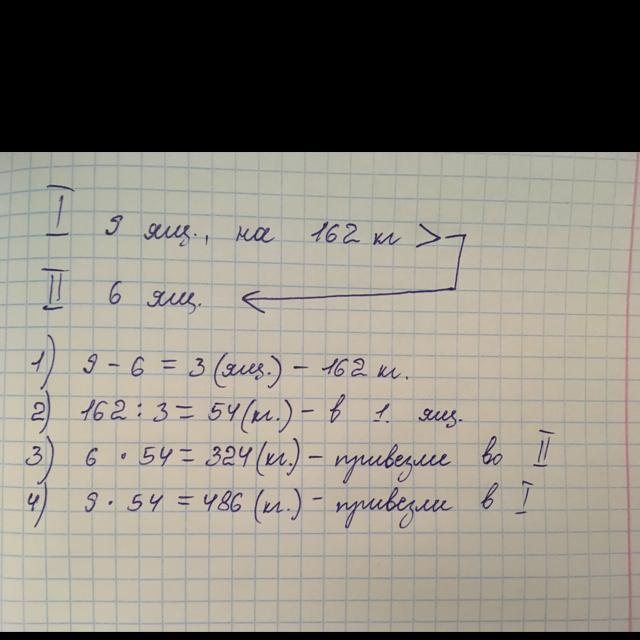 I 9 ящ., на 162 кг >
II 6 ящ.
1) 9 - 6 = 3 (ящ.) - 162 кг.
2) 162 : 3 = 54 (кг.) - в 1. ящ.
3) 6 · 54 = 324 (кг.) - привезли во II
4) 9 · 54 = 486 (кг.) - привезли в I